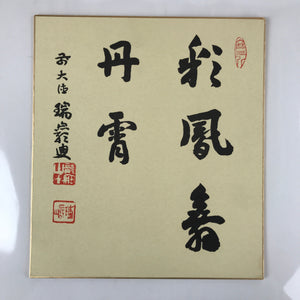 彩鳳舞
丹霄
前大徳瑞巌